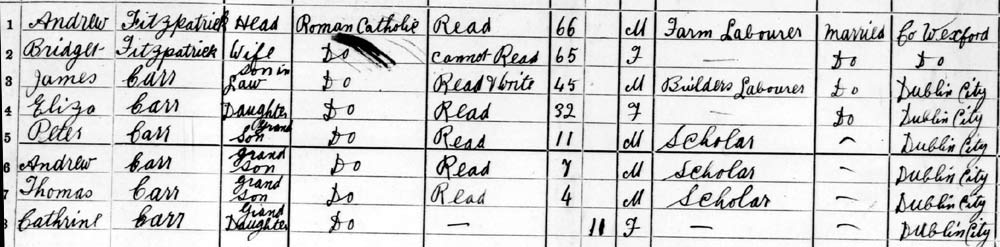 1 Andrew Fitzpatrick Head Roman Catholic Read 66 M Farm Labourer Married Co Wexford
2 Bridget Fitzpatrick Wife Do cannot Read 65 F — Do Do
3 James Carr Son in Law Do Read & write 45 M Builders Labourer Do Dublin City
4 Eliza Carr Daughter Do Read 32 F — Do Dublin City
5 Peter Carr Grand Son Do Read 11 M Scholar — Dublin City
6 Andrew Carr Grand Son Do Read 7 M Scholar — Dublin City
7 Thomas Carr Grand Son Do Read 4 M Scholar — Dublin City
8 Cathrine Carr Grand Daughter Do — 11 F — — Dublin City